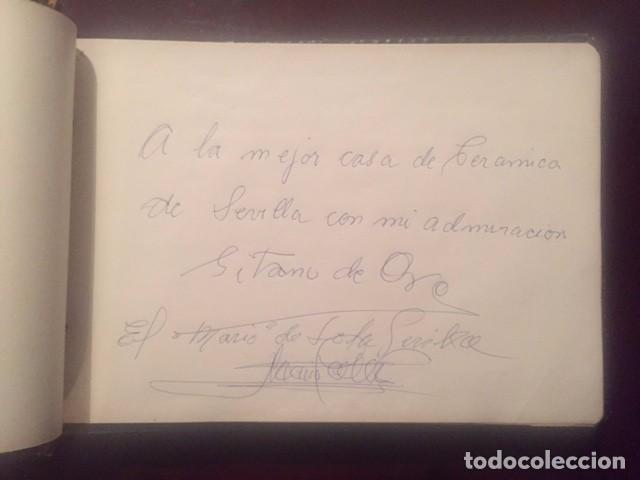 A la mejor casa de Ceramica
de Sevilla con mi admiracion
Gitano de Oro
El Mario de Lola
todocoleccion
todocoleccion.net